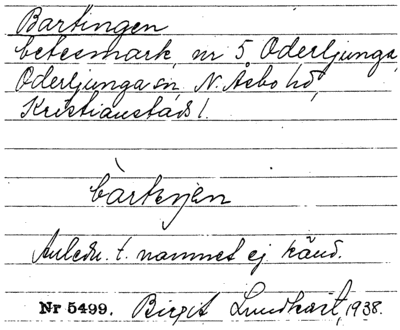 Bartingen
betesmark, nr 5 Oderljunga,
Oderljunga sn, N. Åsbo hd,
Kristianstads l.
bàrteŋen
Anledn. t. namnet ej känd.
Nr 5499. Birgit Lundkvist, 1938.